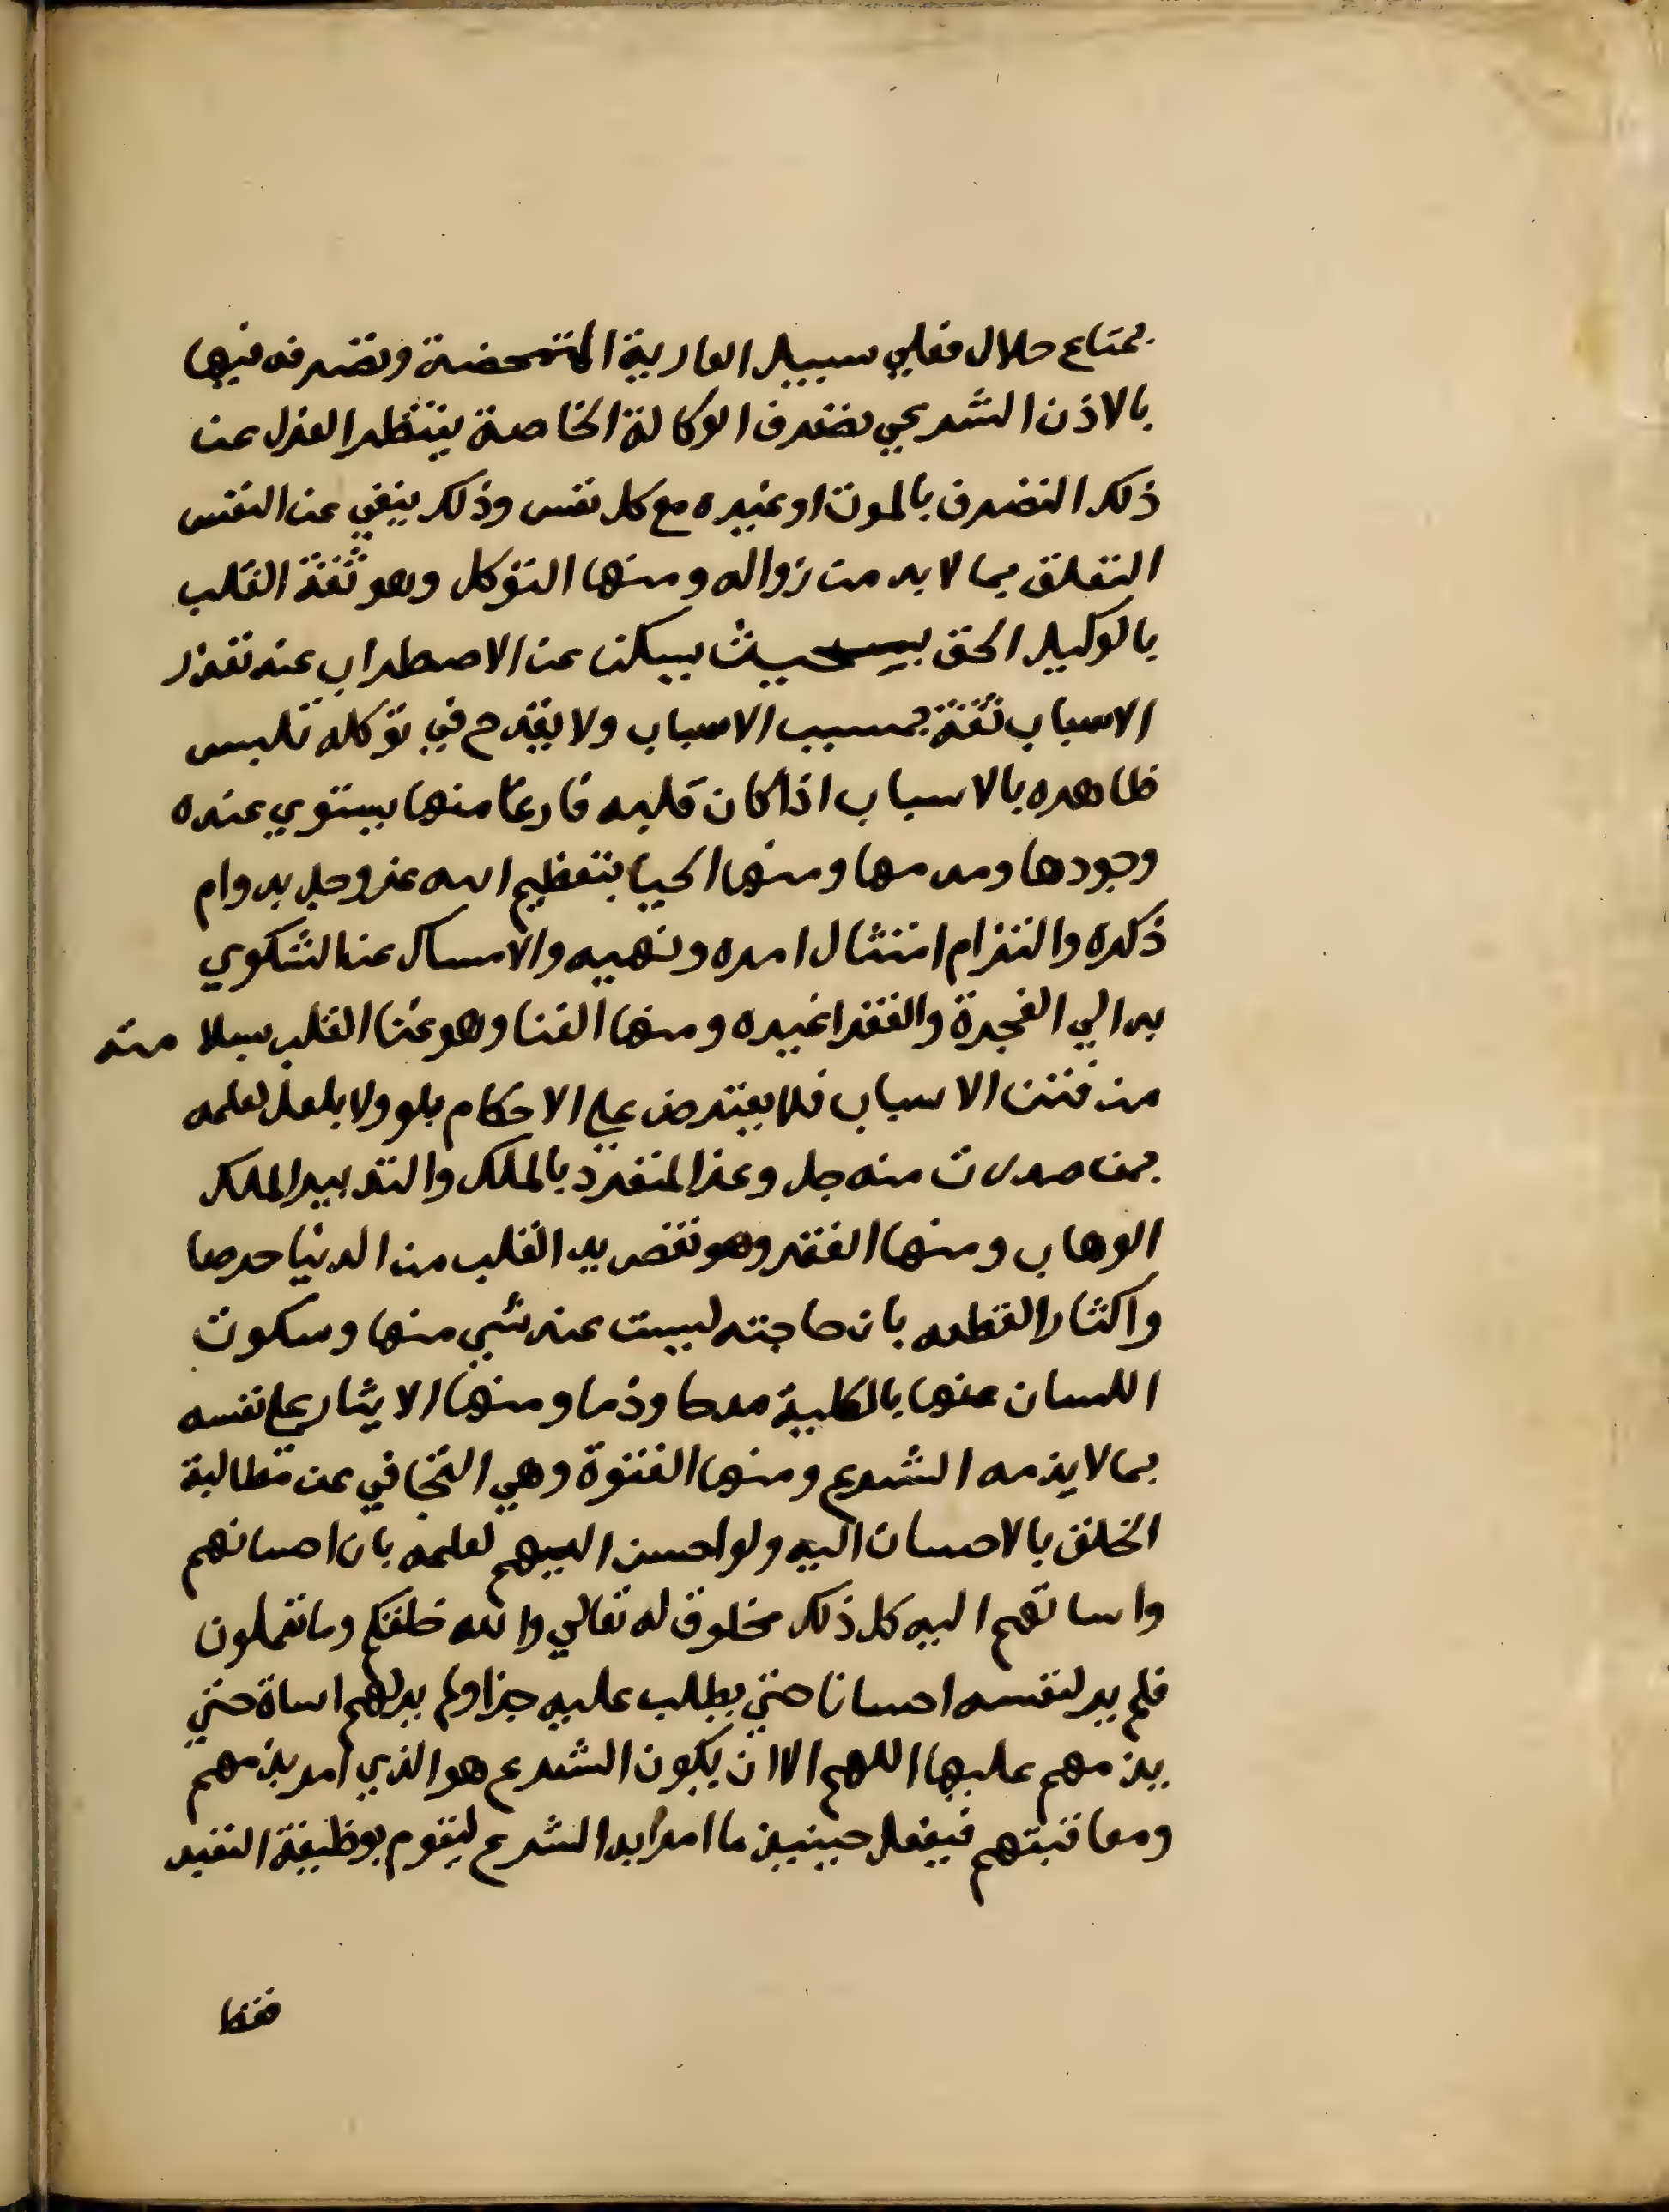 بمتاع حلال فعلي سبيل العارية المتمحضة وتصرفه فيها
بالاذن الشرعي تصرف الوكالة الخاصة ينتظر العزل عن
ذلك التصرف بالموت او غيره مع كل نفس وذلك ينفي عن النفس
التعلق بما لابد من زواله ومنها التوكل وهو ثقة القلب
بالوكيل الحق بحيث يسكن عن الاضطراب عند تعذر
الاسباب ثقة بمسبب الاسباب ولا يقدح في توكله تلبس
ظاهره بالاسباب اذا كان قلبه فارغا منها يستوي عنده
وجودها وعدمها ومنها الحيا بتعظيم الله عز وجل بدوام
ذكره والتزام امتثال امره ونهيه والامساك عن الشكوي
به الي العجزة والفقرا غيره ومنها الغنا وهو غنا القلب بسلا مته
من فتن الاسباب فلا يعترض علي الاحكام بلو ولا بلعل لعلمه
بمن صدرت منه جل وعز المتفرد بالملك والتدبير الملك
الوهاب ومنها الفقر وهو نفض يد القلب من الدنيا حرصا
واكثارا لقطعه بان حاجته ليست عند شي منها وسكوت
اللسان عنها بالكلية مدحا وذما ومنها الايثار علي نفسه
بما لا يذمه الشرع ومنها الفتوة وهي التجافي عن مطالبة
الخلق بالاحسان اليه ولو احسن اليهم لعلمه بان احسانهم
واساتهم اليه كل ذلك مخلوق له تعالي والله خلقكم وما تعملون
فلم ير لنفسه احسانا حتي يطلب عليه جزا ولم ير لهم اساة حتي
يذمهم عليها اللهم الا ان يكون الشرع هو الذي امر بذمهم
ومعاقبتهم فيفعل حينيذ ما امر به الشرع ليقوم بوظيفة التعبد
فقط